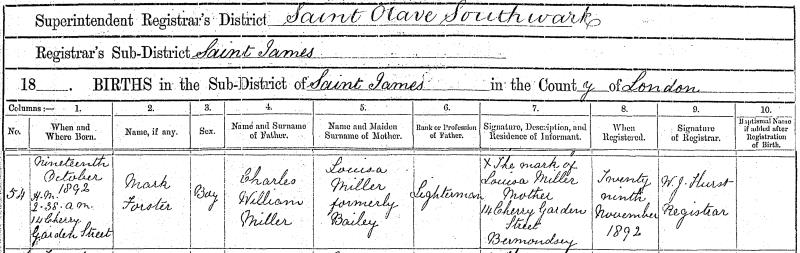 Superintendent Registrar's District Saint Olave Southwark
Registrar's Sub-District Saint James
18 . BIRTHS in the Sub-District of Saint James in the County of London
Columns:— 1. 2. 3. 4. 5. 6. 7. 8. 9. 10.
No. When and Where Born. Name, if any. Sex. Name and Surname of Father. Name and Maiden Surname of Mother. Rank or Profession of Father. Signature, Description, and Residence of Informant. When Registered. Signature of Registrar. Baptismal Name if added after Registration of Birth.
54
Nineteenth
October
1892
2.38 a.m.
14 Cherry
Garden Street
Mark
Forster
Boy
Charles
William
Miller
Louisa
Miller
formerly
Bailey
Lighterman
X The mark of
Louisa Miller
Mother
14 Cherry Garden
Street
Bermondsey
Twenty
ninth
November
1892
W. J. Hurst
Registrar